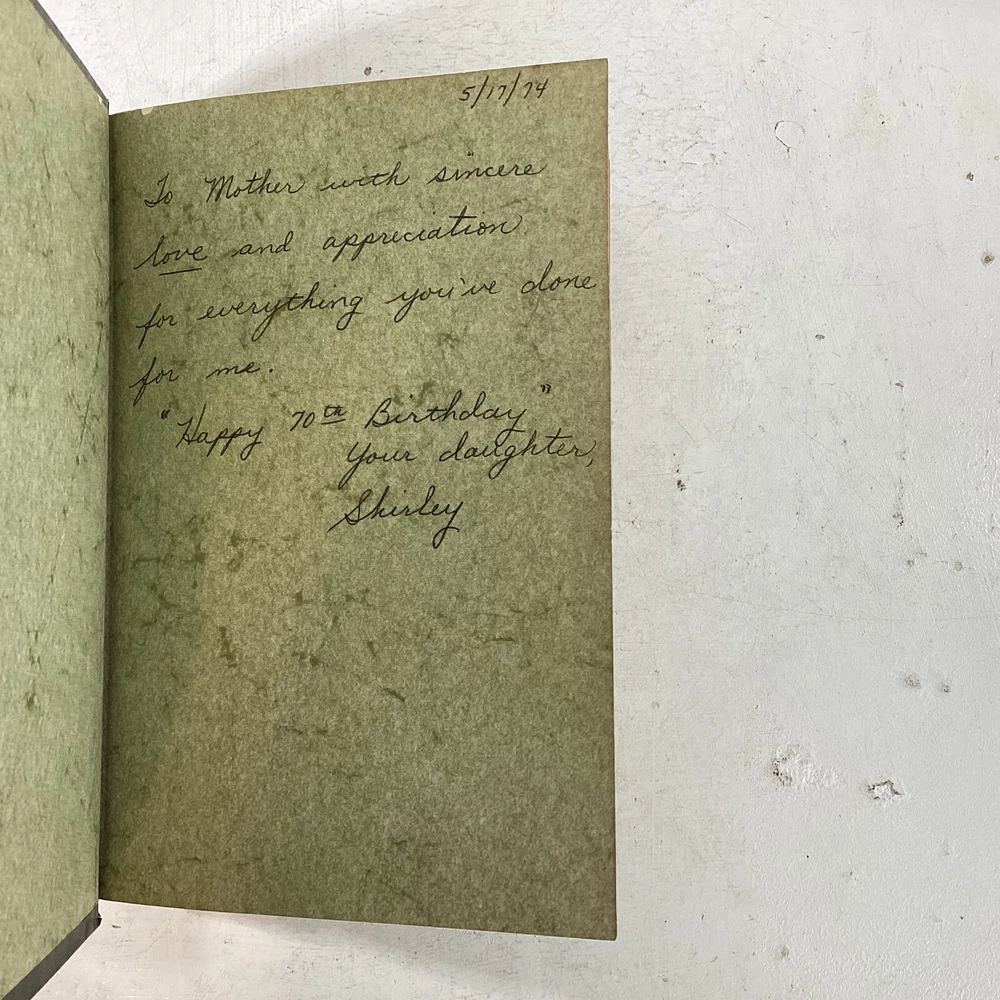 5/17/74
To Mother with sincere
love and appreciation
for everything you've done
for me.
"Happy 70th Birthday"
Your daughter,
Shirley